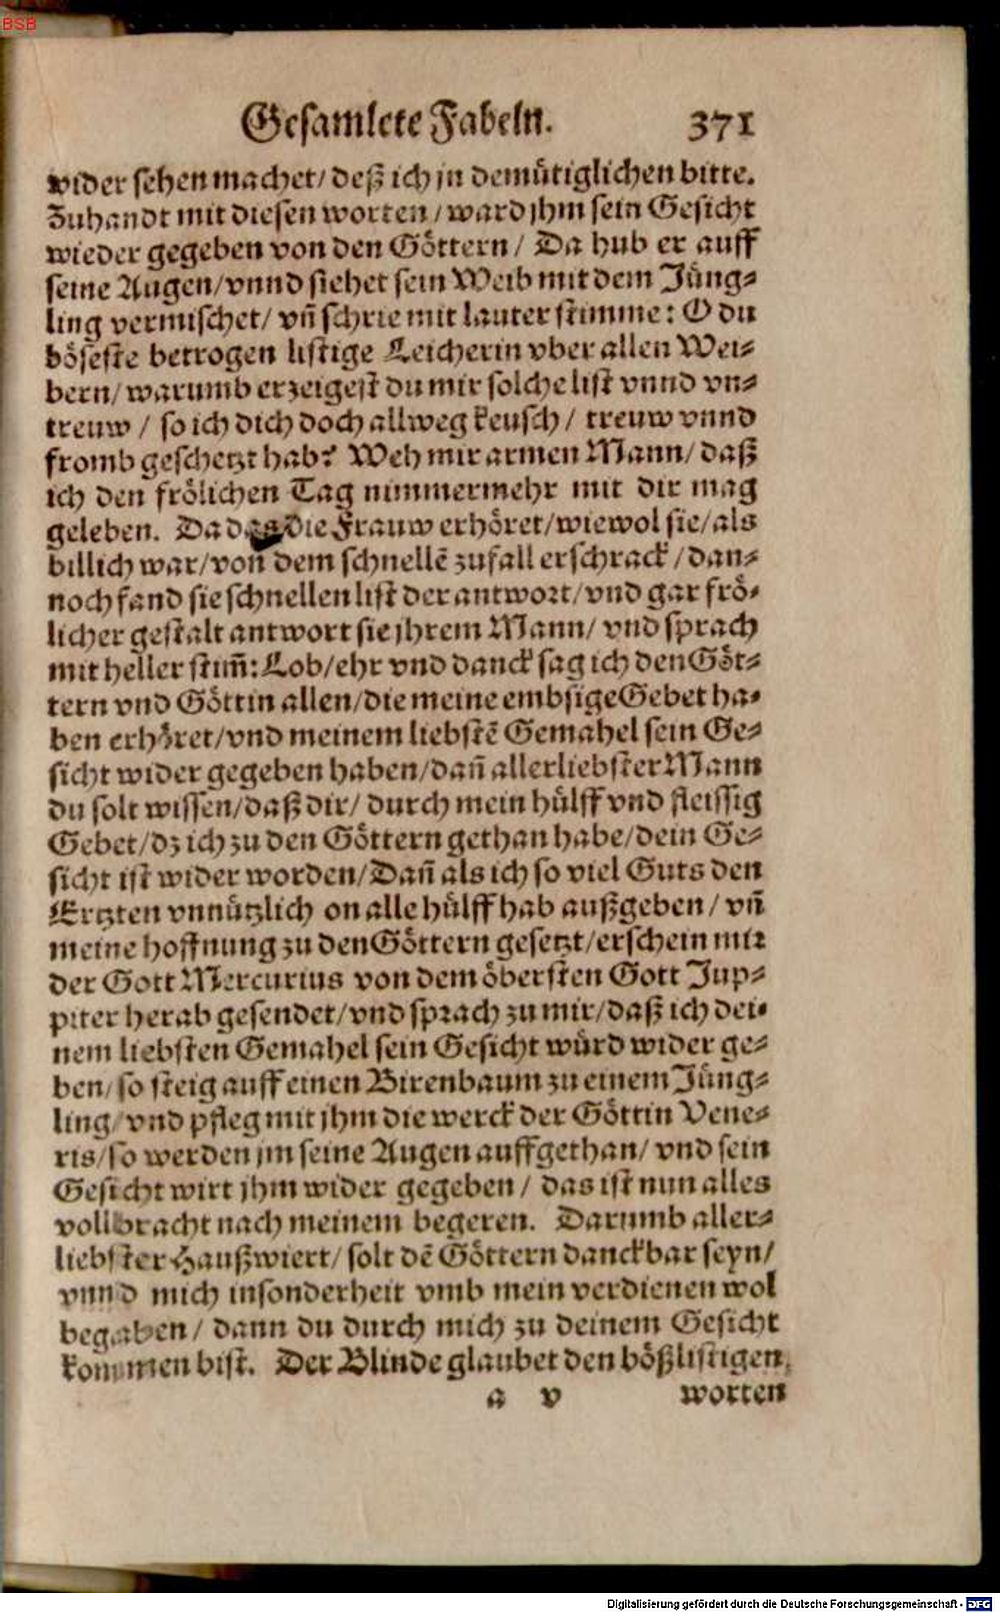 BSB
Gesamlete Fabeln. 371
wider sehen machet/ deß ich jn demütiglichen bitte.
Zuhandt mit diesen worten / ward jhm sein Gesicht
wieder gegeben von den Göttern / Da hub er auff
seine Augen/ vnnd siehet sein Weib mit dem Jüng⸗
ling vermischet/ vñ schrie mit lauter stimme: O du
böseste betrogen listige Leicherin vber allen Wei⸗
bern/ warumb erzeigest du mir solche list vnnd vn⸗
treuw / so ich dich doch allweg keusch / treuw vnnd
fromb geschetzt hab? Weh mir armen Mann/ daß
ich den frölichen Tag nimmermehr mit dir mag
geleben. Da das die Frauw erhöret/ wiewol sie/ als
billich war/ von dem schnellẽ zufall erschrack / dan⸗
noch fand sie schnellen list der antwort/ vnd gar frö⸗
licher gestalt antwort sie jhrem Mann/ vnd sprach
mit heller stim̃: Lob/ ehr vnd danck sag ich den Göt⸗
tern vnd Göttin allen/ die meine embsige Gebet ha⸗
ben erhöret/ vnd meinem liebstẽ Gemahel sein Ge⸗
sicht wider gegeben haben/ dañ allerliebster Mann
du solt wissen/ daß dir/ durch mein hülff vnd fleissig
Gebet/ dz ich zu den Göttern gethan habe/ dein Ge⸗
sicht ist wider worden/ Dañ als ich so viel Guts den
Ertzten vnnützlich on alle hülff hab außgeben / vñ
meine hoffnung zu den Göttern gesetzt/ erschein mir
der Gott Mercurius von dem öbersten Gott Jup⸗
piter herab gesendet/ vnd sprach zu mir/ daß ich dei⸗
nem liebsten Gemahel sein Gesicht würd wider ge⸗
ben/ so steig auff einen Birenbaum zu einem Jüng⸗
ling/ vnd pfleg mit jhm die werck der Göttin Vene⸗
ris/ so werden jm seine Augen auffgethan/ vnd sein
Gesicht wirt jhm wider gegeben / das ist nun alles
vollbracht nach meinem begeren. Darumb aller⸗
liebster Haußwiert/ solt dẽ Göttern danckbar seyn/
vnnd mich insonderheit vmb mein verdienen wol
begaben / dann du durch mich zu deinem Gesicht
kommen bist. Der Blinde glaubet den bößlistigen
a v worten
Digitalisierung gefördert durch die Deutsche Forschungsgemeinschaft - DFG